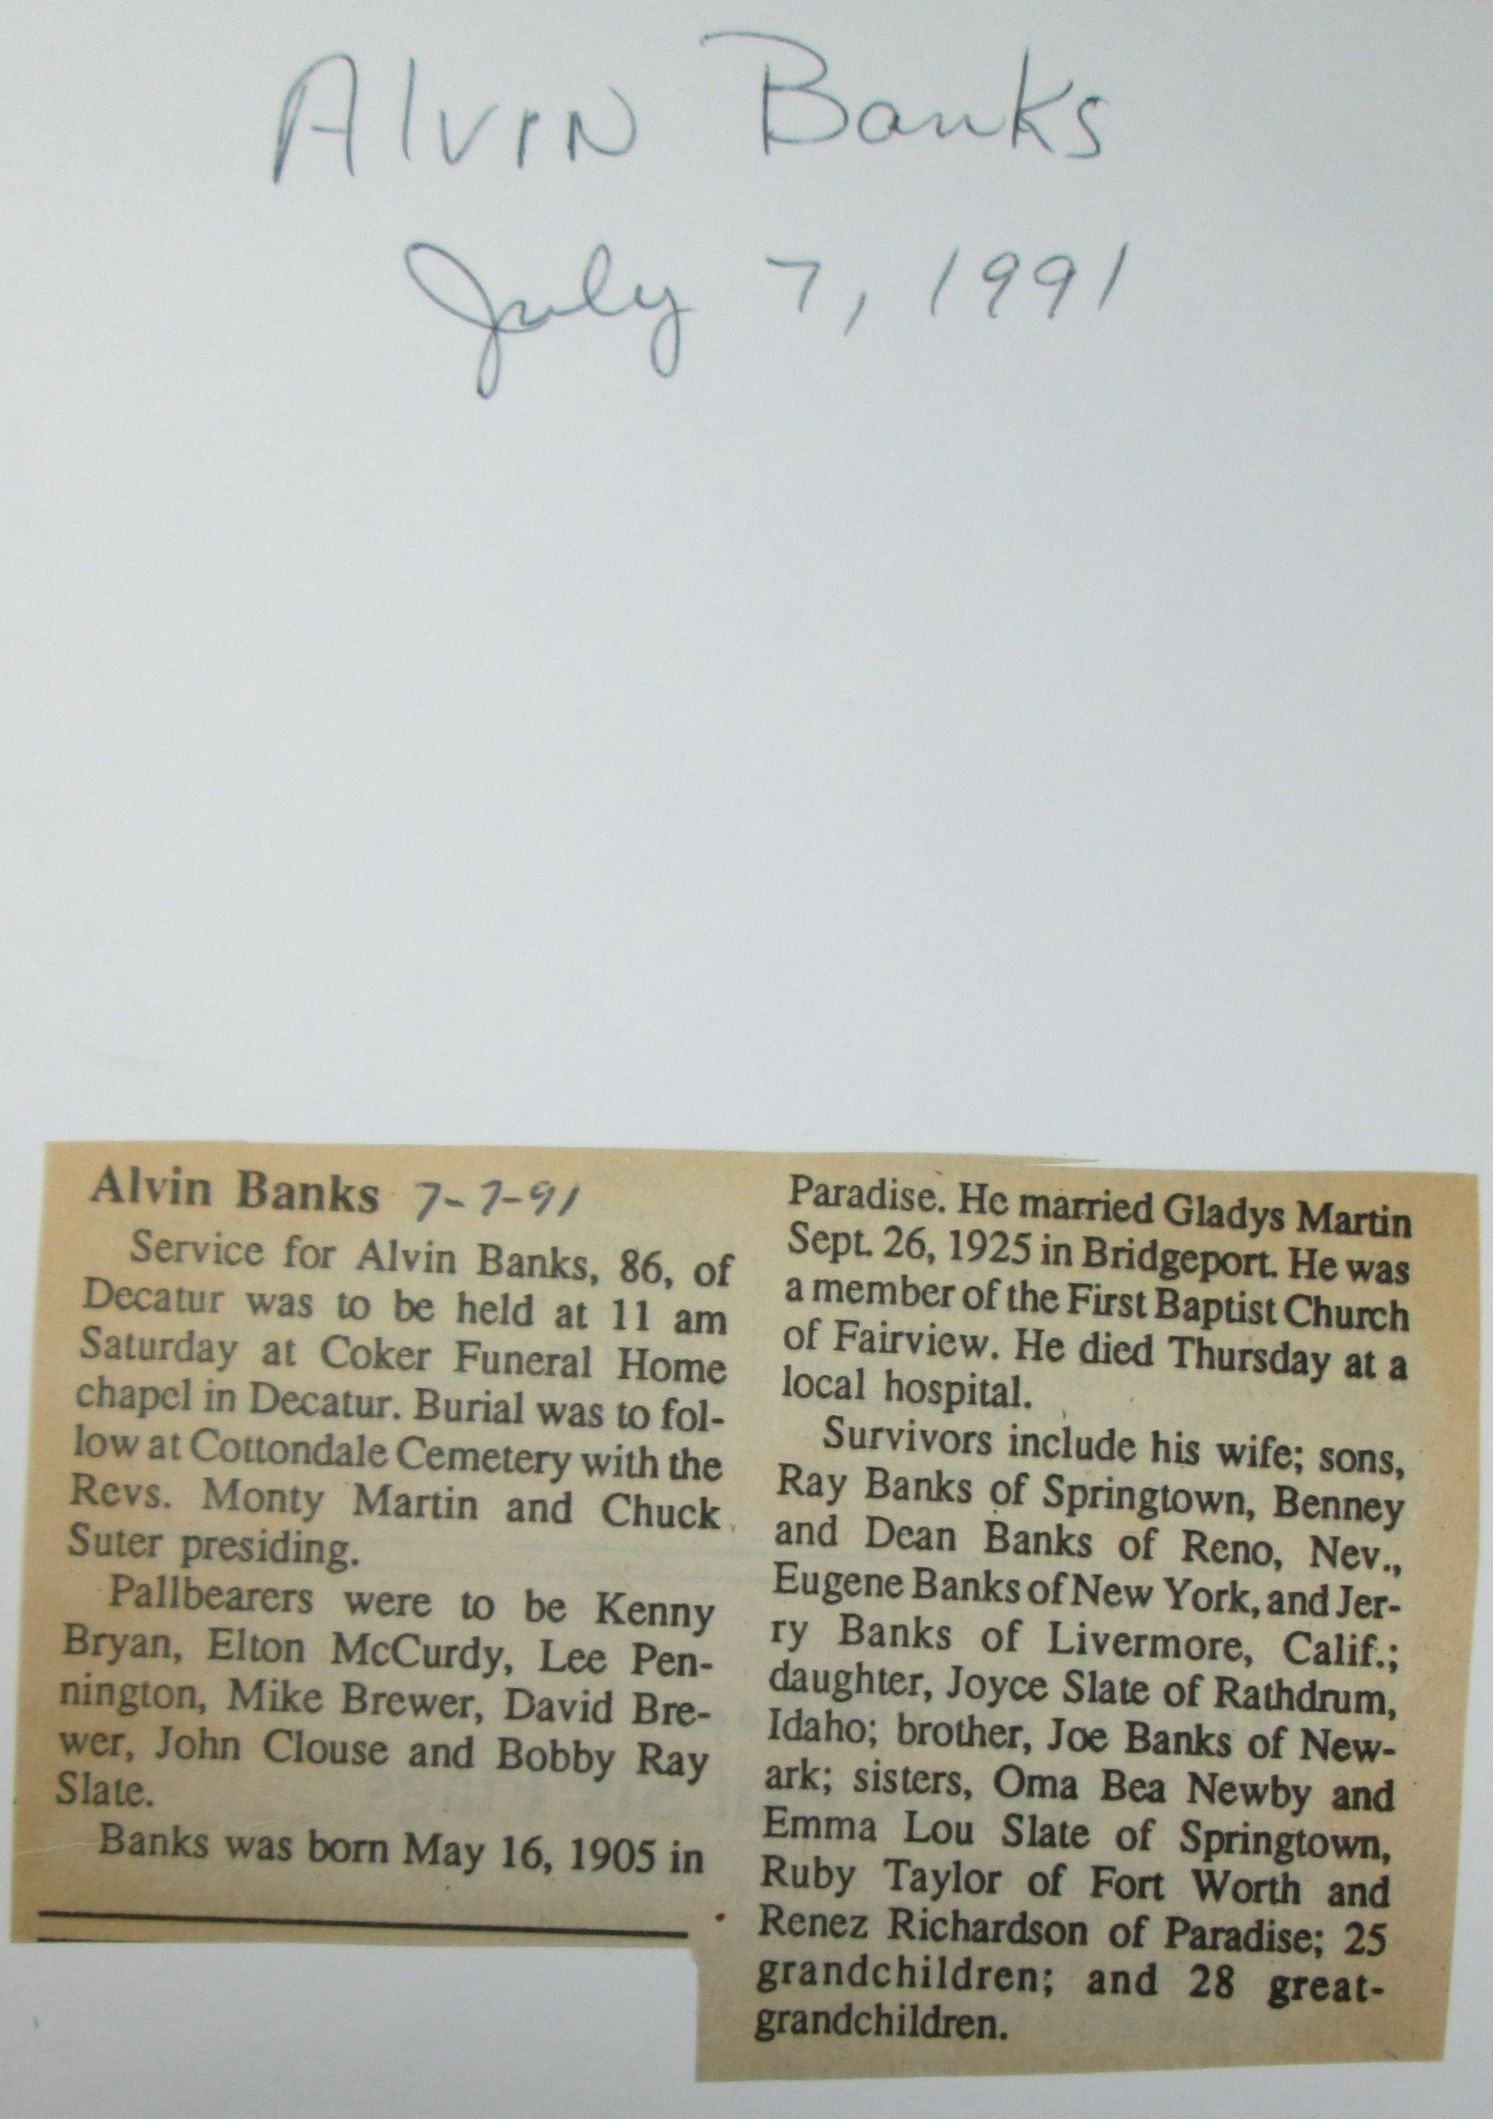 Alvin Banks
July 7, 1991
Alvin Banks 7-7-91
Service for Alvin Banks, 86, of
Decatur was to be held at 11 am
Saturday at Coker Funeral Home
chapel in Decatur. Burial was to fol-
low at Cottondale Cemetery with the
Revs. Monty Martin and Chuck
Suter presiding.
Pallbearers were to be Kenny
Bryan, Elton McCurdy, Lee Pen-
nington, Mike Brewer, David Bre-
wer, John Clouse and Bobby Ray
Slate.
Banks was born May 16, 1905 in
Paradise. He married Gladys Martin
Sept. 26, 1925 in Bridgeport. He was
a member of the First Baptist Church
of Fairview. He died Thursday at a
local hospital.
Survivors include his wife; sons,
Ray Banks of Springtown, Benney
and Dean Banks of Reno, Nev.,
Eugene Banks of New York, and Jer-
ry Banks of Livermore, Calif.;
daughter, Joyce Slate of Rathdrum,
Idaho; brother, Joe Banks of New-
ark; sisters, Oma Bea Newby and
Emma Lou Slate of Springtown,
Ruby Taylor of Fort Worth and
Renez Richardson of Paradise; 25
grandchildren; and 28 great-
grandchildren.